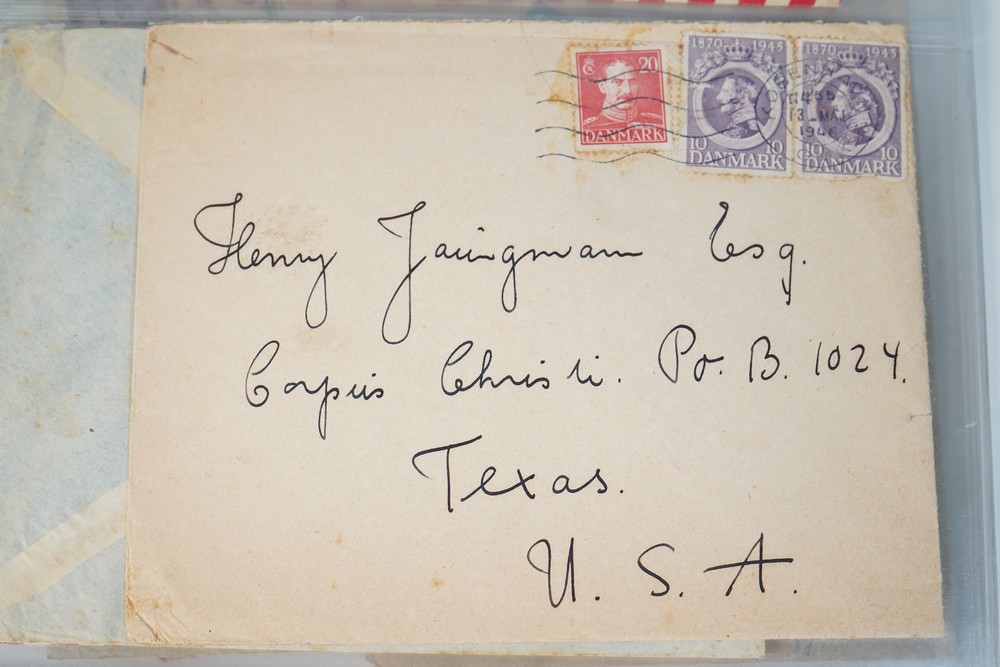 20
DANMARK
1870 1945
10 10
DANMARK
1870 1945
10 10
DANMARK
13 MAJ
1946
Henry
Esq.
Corpus Christi. Po. B. 1024.
Texas.
U. S. A.